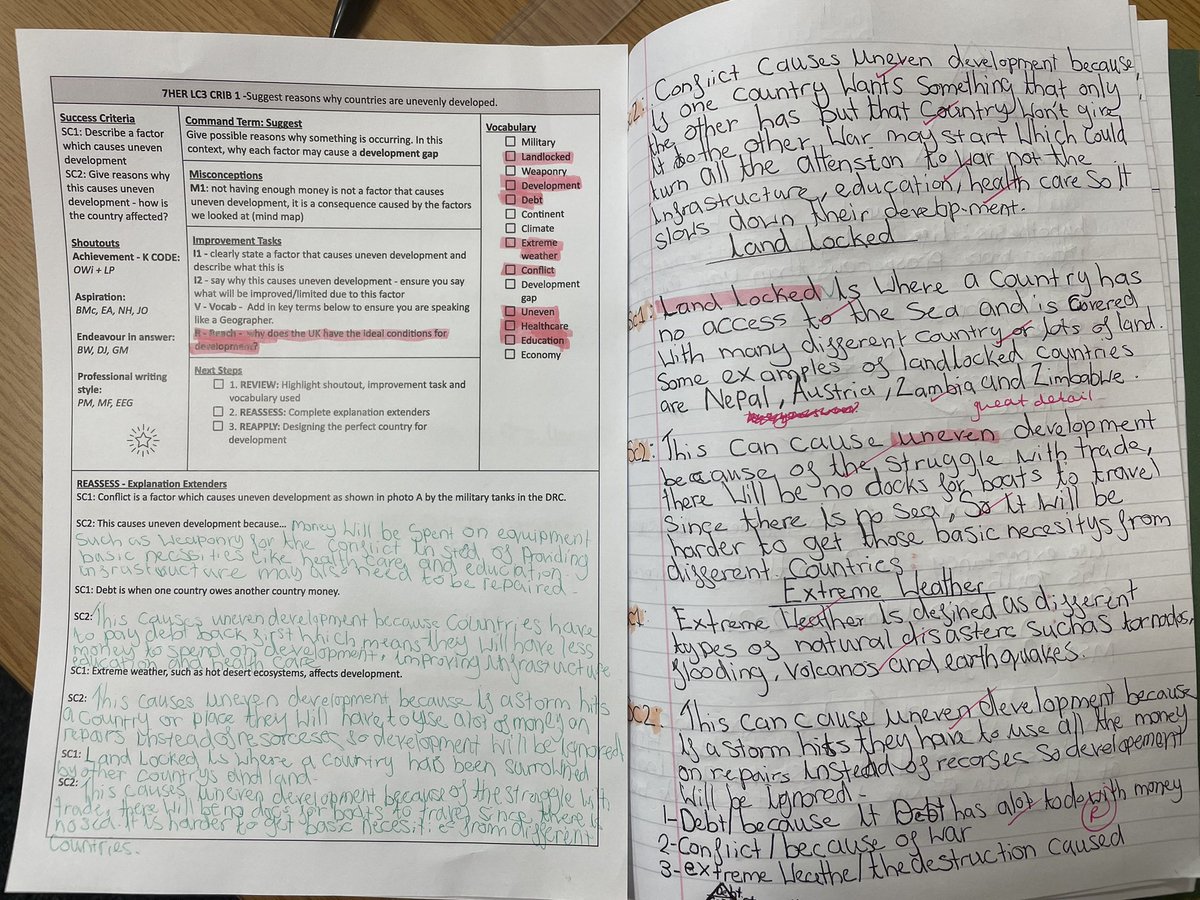 7HER LC3 CRIB 1 -Suggest reasons why countries are unevenly developed.
Success Criteria
SC1: Describe a factor
which causes uneven
development
SC2: Give reasons why
this causes uneven
development - how is
the country affected?
Shoutouts
Achievement - K CODE:
OWi + LP
Aspiration:
BMc, EA, NH, JO
Endeavour in answer:
BW, DJ, GM
Professional writing
style:
PM, MF, EEG
Command Term: Suggest
Give possible reasons why something is occurring. In this
context, why each factor may cause a development gap
Misconceptions
M1: not having enough money is not a factor that causes
uneven development, it is a consequence caused by the factors
we looked at (mind map)
Improvement Tasks
I1 - clearly state a factor that causes uneven development and
describe what this is
I2 - say why this causes uneven development - ensure you say
what will be improved/limited due to this factor
V - Vocab - Add in key terms below to ensure you are speaking
like a Geographer.
R - Reach - why does the UK have the ideal conditions for
development?
Next Steps
1. REVIEW: Highlight shoutout, improvement task and
vocabulary used
2. REASSESS: Complete explanation extenders
3. REAPPLY: Designing the perfect country for
development
Vocabulary
Military
Landlocked
Weaponry
Development
Debt
Continent
Climate
Extreme
weather
Conflict
Development
gap
Uneven
Healthcare
Education
Economy
REASSESS - Explanation Extenders
SC1: Conflict is a factor which causes uneven development as shown in photo A by the military tanks in the DRC.
SC2: This causes uneven development because... money will be spent on equipment
such as weaponry for the conflict instead of providing
basic necssities like health care and education.
infrastructure may also need to be repaired.
SC1: Debt is when one country owes another country money.
SC2: This causes uneven development because countries have
to pay debt back first which means they will have less
money to spend on development, improving infrastucture
and health care
SC1: Extreme weather, such as hot desert ecosystems, affects development.
SC2: This causes uneven development because if a storm hits
a country or place they will have to use alot of money on
repairs instead of resorceses so development will be ignored
SC1: Land Locked is where a country has been surrowned
by other countrys and land.
SC2: This causes uneven development because of the struggle with
trade, there will be no docs for boats to travel since there is
no sea. It is harder to get basic necesities from different
countries.
2: Conflict causes uneven development because,
is one country wants something that only
the other has but that country won't give
it to the other. War may start which could
turn all the attension to war not the
infrastructure, education, health care so it
slows down their development.
Land Locked
SC1: Land Locked is where a country has
no access to the sea and is covered
with many different country or lots of land.
Some examples of landlocked countries
are Nepal, Austria, Zambia and Zimbabwe.
great detail
SC2: This can cause uneven development
because of the struggle with trade,
there will be no docks for boats to travel
since there is no sea, so it will be
harder to get those basic necesitys from
different countries.
Extreme Weather
C1: Extreme Weather is defined as different
types of natural disasters such as tornados,
flooding, volcanos and earthquakes.
SC2: This can cause uneven development because
if a storm hits they have to use all the money
on repairs instead of recorses so developement
will be ignored.
1-Debt/because it Debt has alot todo with money
R
2-Conflict/because of war
3-extreme weathe/the destruction caused